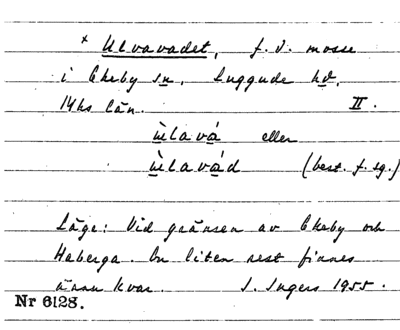 * Ulvavadet, f. d. mosse
i Ekeby sn, Luggude hd,
Mhs län. II.
ùlavá eller
ùlavád (best. f. sg.)
Läge: Vid gränsen av Ekeby och
Haberga. En liten rest finnes
ännu kvar. I. Ingers 1955.
Nr 6128.